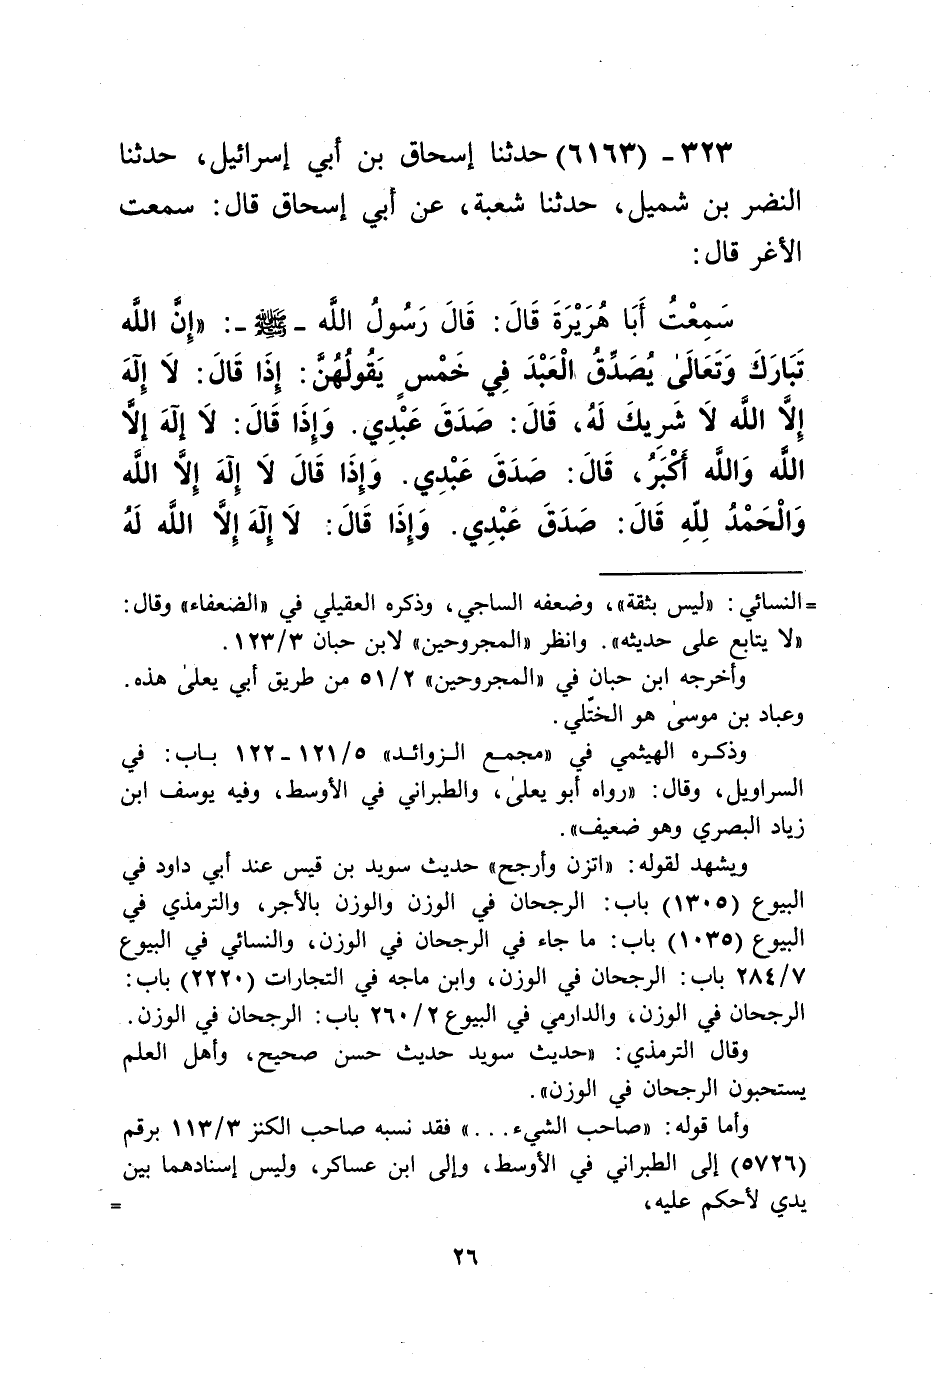 ٣٢٣ ـ (٦١٦٣) حدثنا إسحاق بن أبي إسرائيل، حدثنا
النضر بن شميل، حدثنا شعبة، عن أبي إسحاق قال: سمعت
الأغر قال:
سَمِعْتُ أَبَا هُرَيْرَةَ قَالَ: قَالَ رَسُولُ اللَّه ـ ﷺ ـ: «إِنَّ اللَّه
تَبَارَكَ وَتَعَالَىٰ يُصَدِّقُ الْعَبْدَ فِي خَمْسٍ يَقُولُهُنَّ: إِذَا قَالَ: لَا إِلَهَ
إِلَّا اللَّه لَا شَرِيكَ لَهُ، قَالَ: صَدَقَ عَبْدِي. وَإِذَا قَالَ: لَا إِلَهَ إِلَّا
اللَّه وَاللَّه أَكْبَرُ، قَالَ: صَدَقَ عَبْدِي. وَإِذَا قَالَ لَا إِلَهَ إِلَّا اللَّه
وَالْحَمْدُ لِلّهِ قَالَ: صَدَقَ عَبْدِي. وَإِذَا قَالَ: لَا إِلَهَ إِلَّا اللَّه لَهُ
= النسائي: «ليس بثقة»، وضعفه الساجي، وذكره العقيلي في «الضعفاء» وقال:
«لا يتابع على حديثه». وانظر «المجروحين» لابن حبان ١٢٣/٣.
وأخرجه ابن حبان في «المجروحين» ٥١/٢ من طريق أبي يعلىٰ هذه.
وعباد بن موسىٰ هو الختّلي.
وذكره الهيثمي في «مجمع الزوائد» ١٢١/٥ ـ ١٢٢ باب: في
السراويل، وقال: «رواه أبو يعلىٰ، والطبراني في الأوسط، وفيه يوسف ابن
زياد البصري وهو ضعيف».
ويشهد لقوله: «اتزن وأرجح» حديث سويد بن قيس عند أبي داود في
البيوع (١٣٠٥) باب: الرجحان في الوزن والوزن بالأجر، والترمذي في
البيوع (١٠٣٥) باب: ما جاء في الرجحان في الوزن، والنسائي في البيوع
٢٨٤/٧ باب: الرجحان في الوزن، وابن ماجه في التجارات (٢٢٢٠) باب:
الرجحان في الوزن، والدارمي في البيوع ٢٦٠/٢ باب: الرجحان في الوزن.
وقال الترمذي: «حديث سويد حديث حسن صحيح، وأهل العلم
يستحبون الرجحان في الوزن».
وأما قوله: «صاحب الشيء...» فقد نسبه صاحب الكنز ١١٣/٣ برقم
(٥٧٢٦) إلى الطبراني في الأوسط، وإلى ابن عساكر، وليس إسنادهما بين
يدي لأحكم عليه، =
٢٦